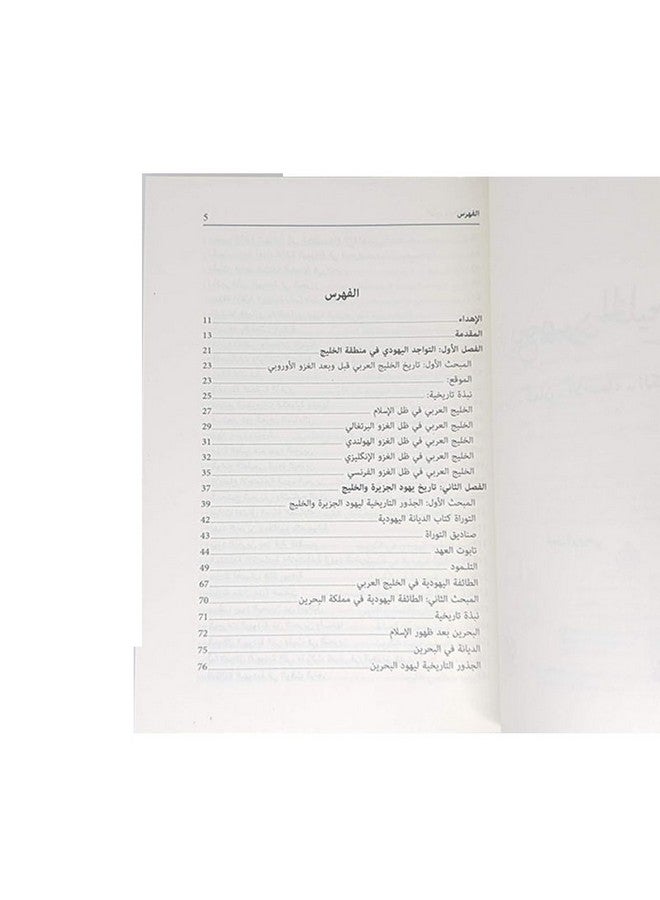 الفهرس 5
الفهرس
الإهداء 11
المقدمة 13
الفصل الأول: التواجد اليهودي في منطقة الخليج 21
المبحث الأول: تاريخ الخليج العربي قبل وبعد الغزو الأوروبي 23
الموقع: 23
نبذة تاريخية: 25
الخليج العربي في ظل الإسلام 27
الخليج العربي في ظل الغزو البرتغالي 29
الخليج العربي في ظل الغزو الهولندي 31
الخليج العربي في ظل الغزو الإنكليزي 32
الخليج العربي في ظل الغزو الفرنسي 35
الفصل الثاني: تاريخ يهود الجزيرة والخليج 37
المبحث الأول: الجذور التاريخية ليهود الجزيرة والخليج 39
التوراة كتاب الديانة اليهودية 42
صناديق التوراة 43
تابوت العهد 44
التلمود 49
الطائفة اليهودية في الخليج العربي 67
المبحث الثاني: الطائفة اليهودية في مملكة البحرين 70
نبذة تاريخية 71
البحرين بعد ظهور الإسلام 72
الديانة في البحرين 75
الجذور التاريخية ليهود البحرين 76